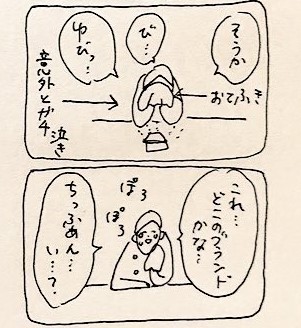 そうか
び…
ゆびっ…
おてふき
意外とガチ
泣き
これ…
どこのブランド
かな…
ぽろ
ぽろ
ちっふぁん…
い…?